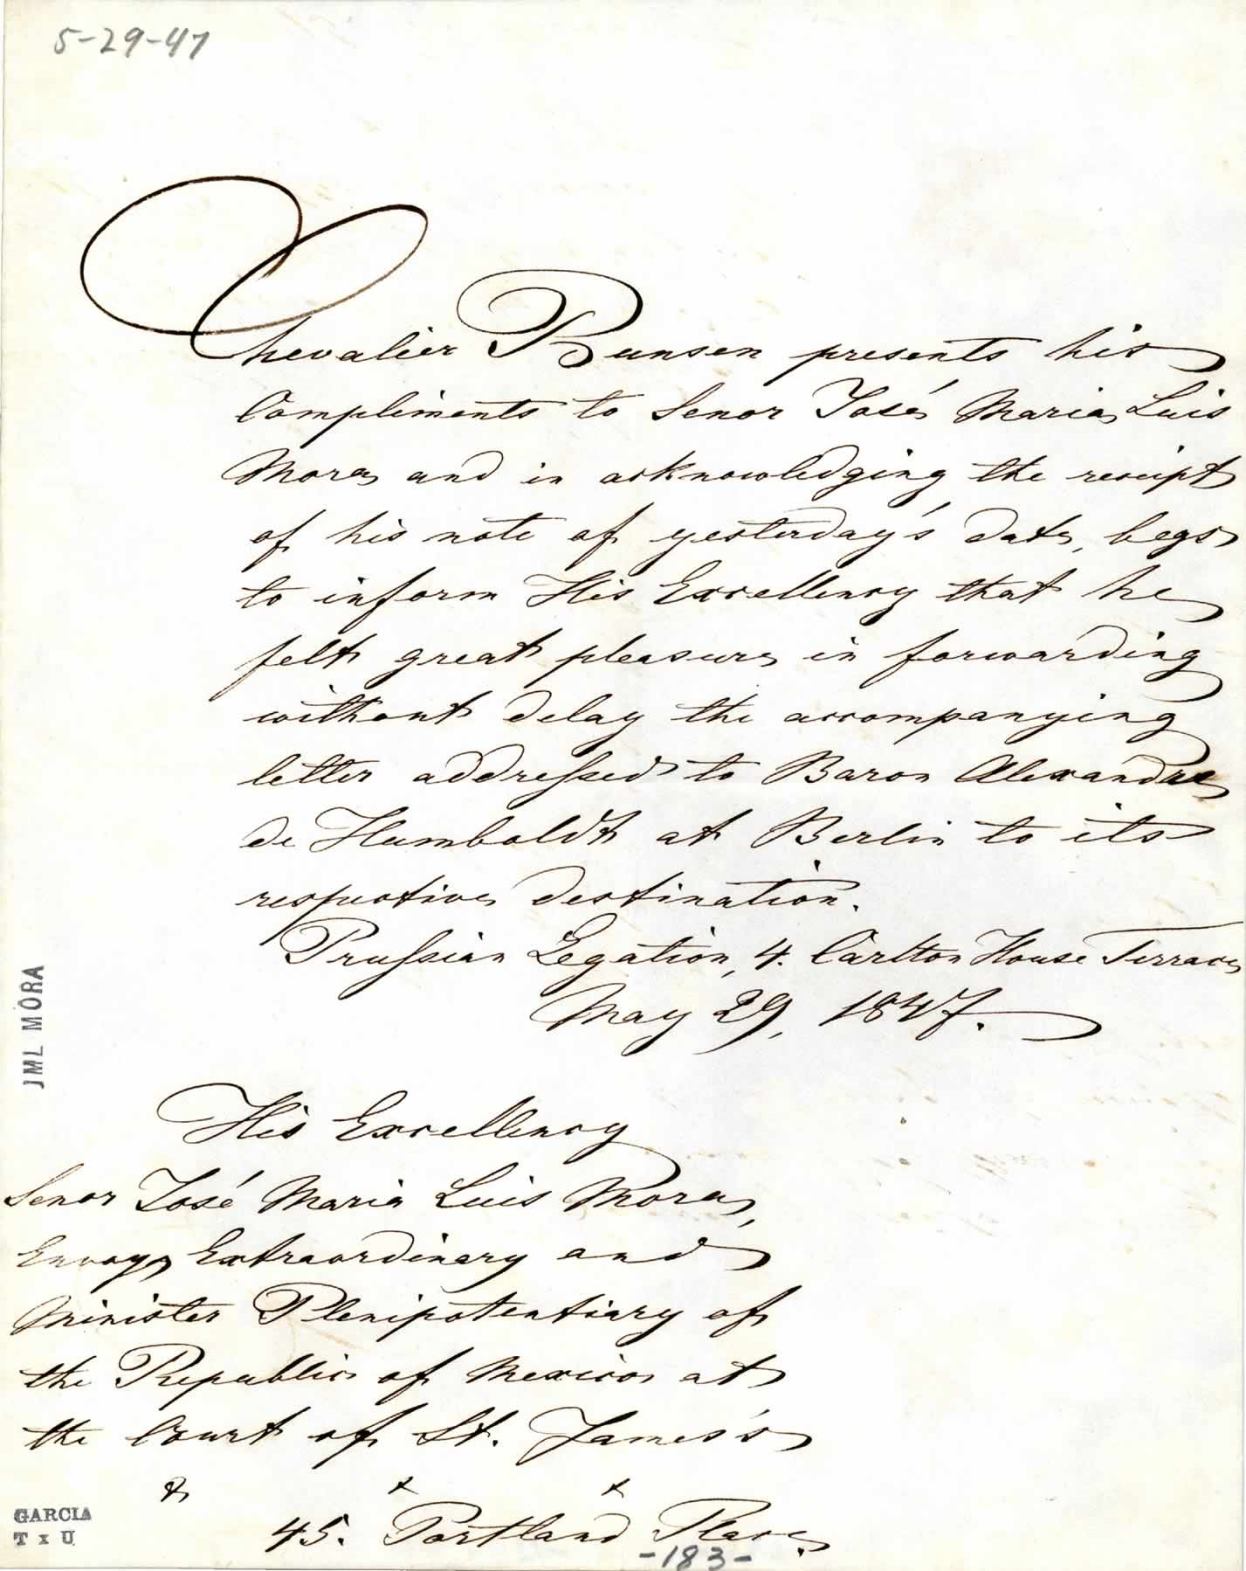 5-29-47
Chevalier Bunsen presents his
Compliments to Senor José Maria Luis
Mora and in acknowledging the receipt
of his note of yesterday's date, begs
to inform His Excellency that he
felt great pleasure in forwarding
without delay the accompanying
letter addressed to Baron Alexandre
de Humboldt at Berlin to its
respective destination.
Prussian Legation, 4. Carlton House Terrace
May 29, 1847.
JML MORA
His Excellency
Senor José Maria Luis Mora,
Envoy Extraordinary and
Minister Plenipotentiary of
the Republic of Mexico at
the Court of St. James's
& x x
45. Portland Place.
GARCIA
T x U
-183-